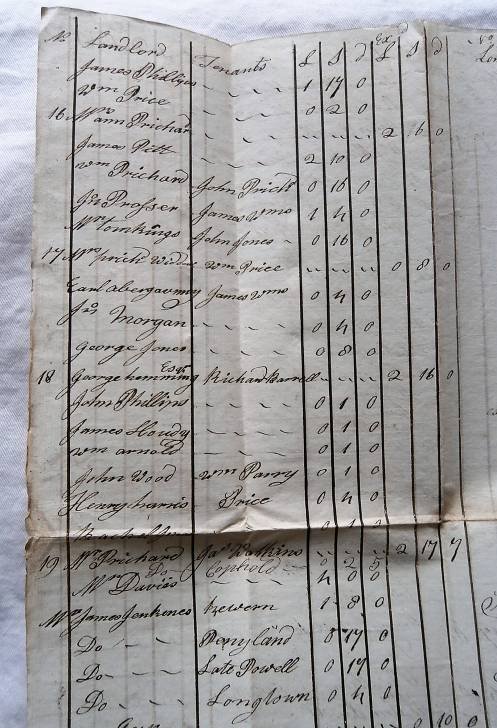 No Landlord Tenants £ S d Ex £ S d
James Phillips - - - - 1 17 0
Wm Price - - - - 0 2 0
16 Mrs ann Prichard - - - - 2 6 0
James Pitt - - - - 2 10 0
Wm Prichard John Prichd 0 16 0
Jno Prosser James Wms 1 4 0
Mr Tomkings John Jones - 0 16 0
17 Mrs prichd Widow Wm Price 0 8 0
Earl abergavenny James Wms 0 4 0
Jno Morgan - - - - 0 4 0
George Jones - - - - 0 8 0
18 George hemming Esqr Richard Barrell 2 16 0
John Phillips - - - - 0 1 0
James Houdy - - - - 0 1 0
Wm arnold - - - - 0 1 0
John Wood Wm Parry 0 1 0
Henry harris Price 0 4 0
19 Mr Prichard Jas Watkins 2 17 7
Do Cophold 0 2 5
Mrs Davies 4 0 0
Mrs James Jenkines Kewern 1 8 0
Do - - Penyland 0 17 0
Do - - Late Powell 0 17 0
Do - - Longtown 0 4 0
0 10 0